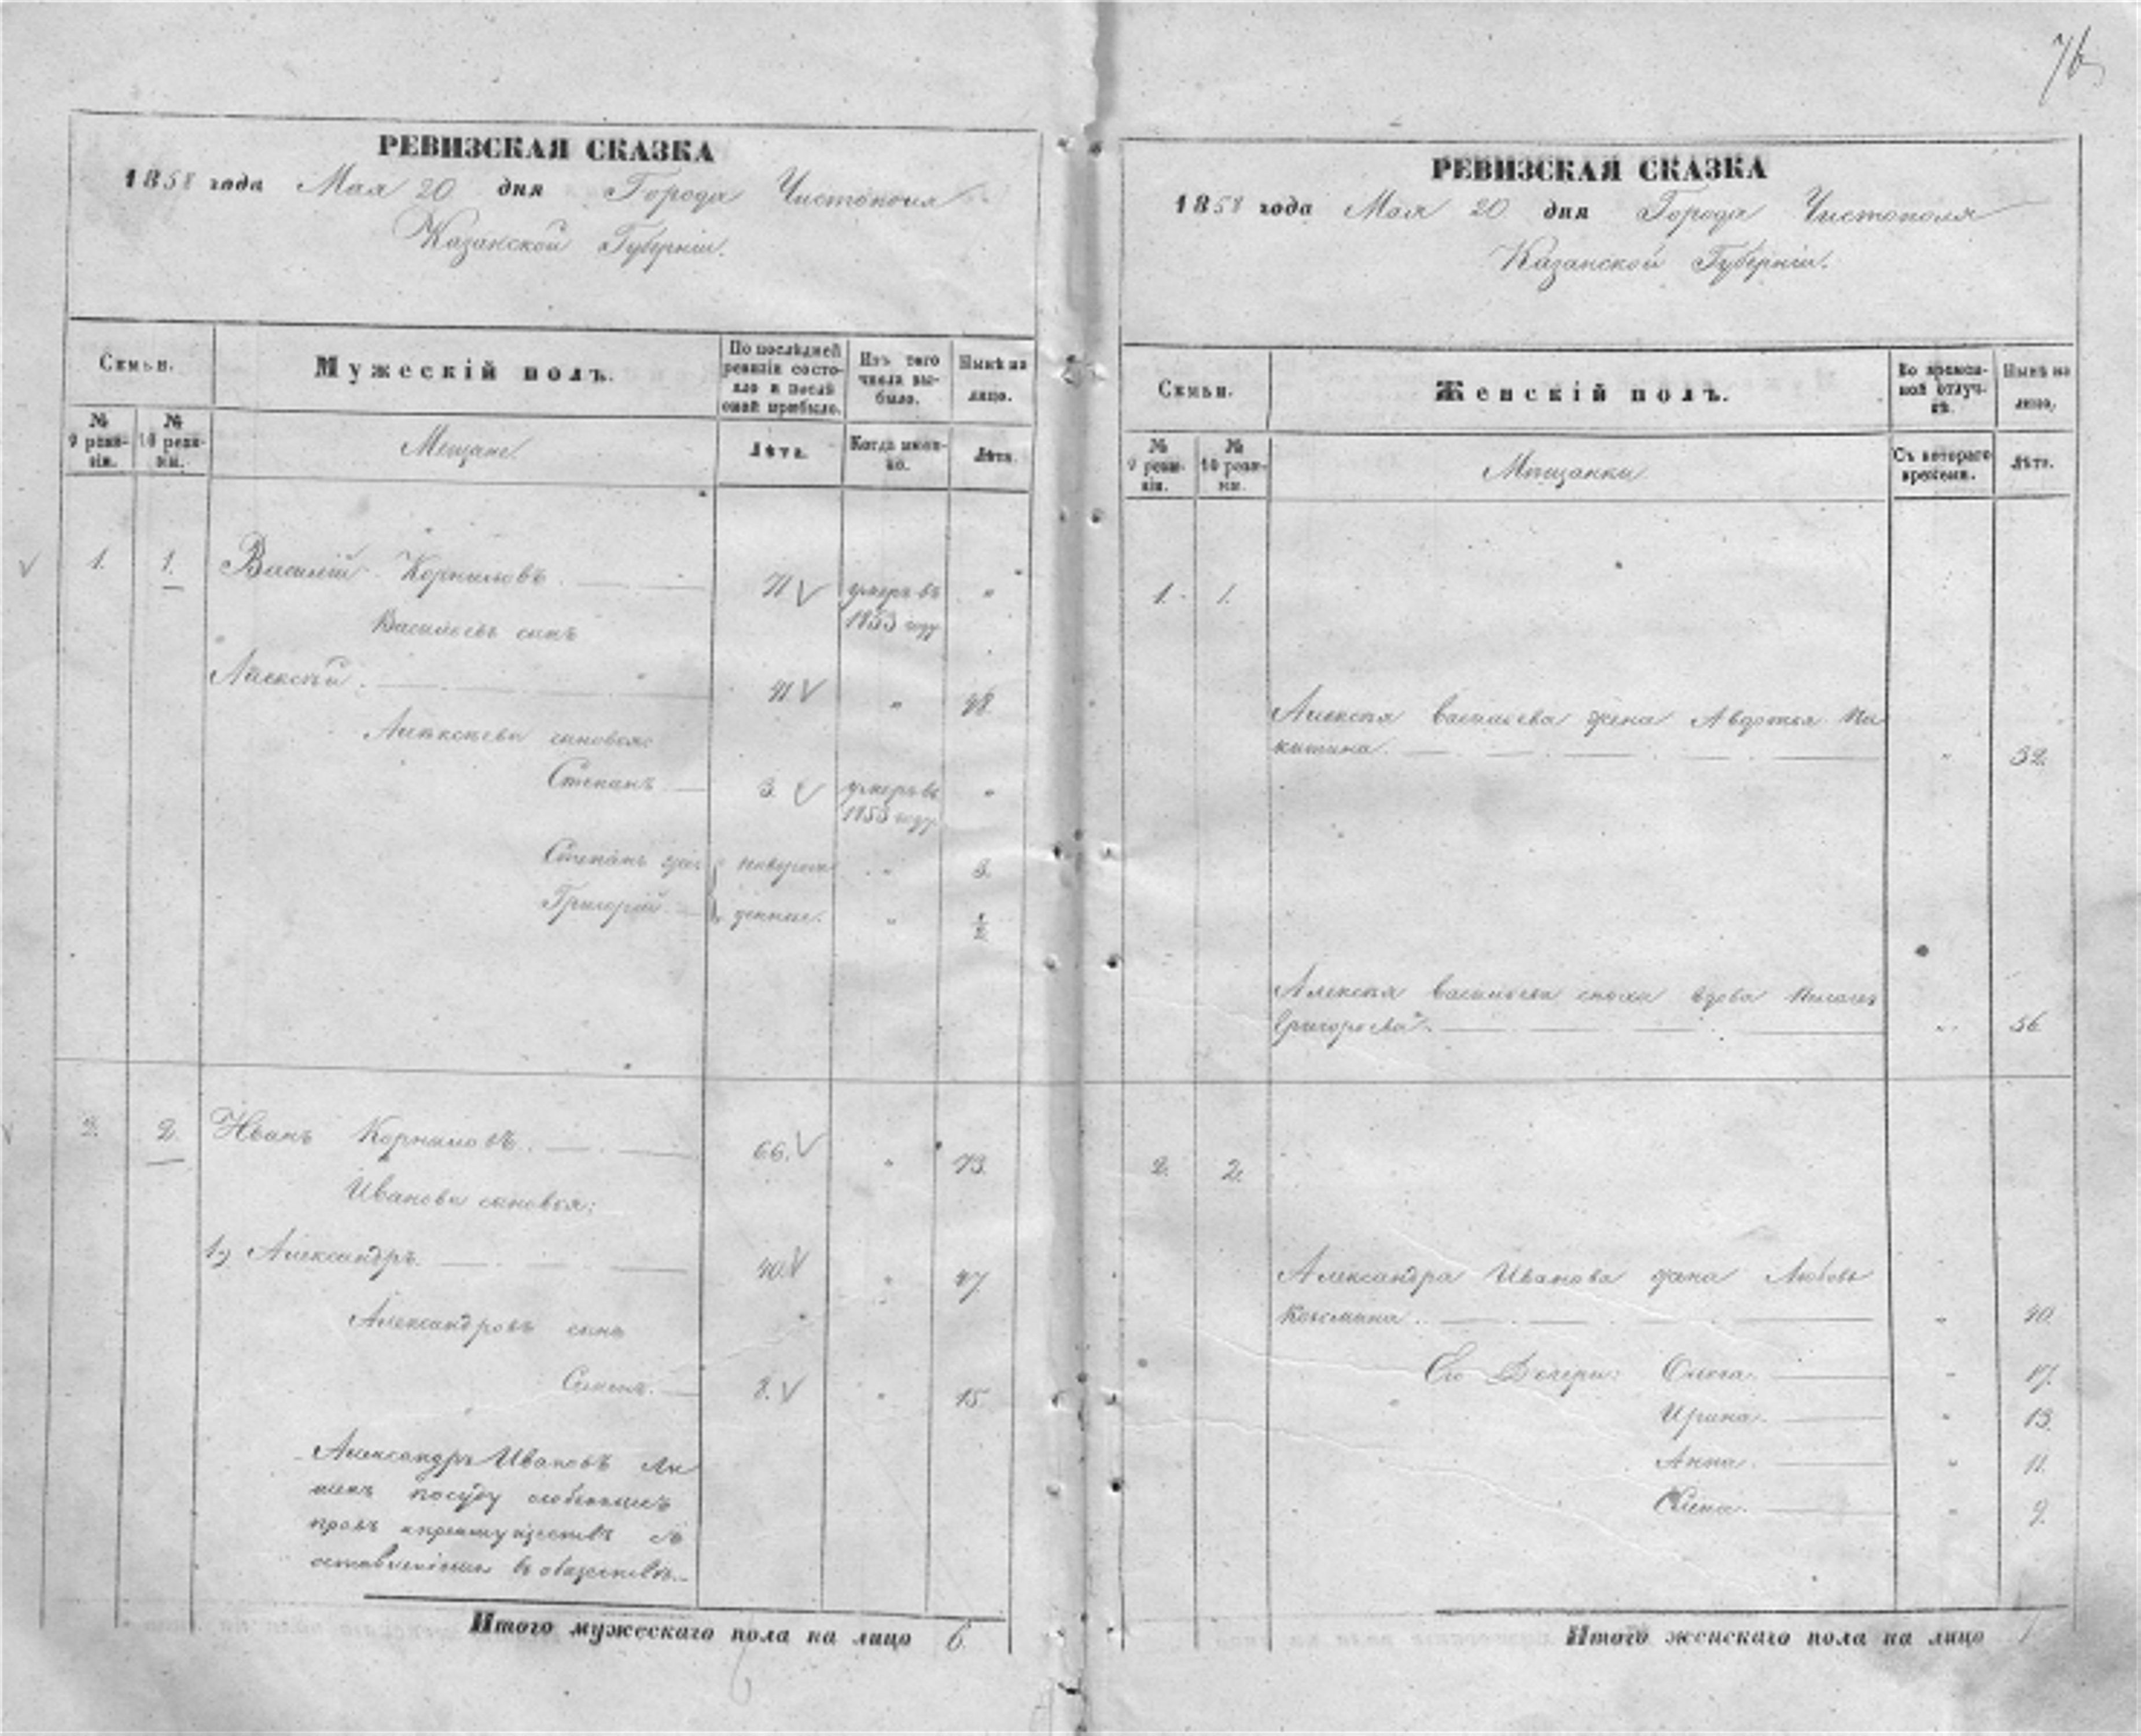 76
РЕВИЗСКАЯ СКАЗКА
1858 года Мая 20 дня Города Чистополя
Казанской Губерніи.
Семьи.
Мужескій полъ.
По послѣдней ревизіи состояло и послѣ оной прибыло.
Изъ того числа выбыло.
Нынѣ на лицо.
№ 9 ревизіи.
№ 10 ревизіи.
Мещане
Лѣта.
Когда именно.
Лѣта.
1. 1. Василій Корниловъ 71 умеръ въ "
1853 году
Васильевъ сынъ
Алексѣй 41 " 48
Алексѣевы сыновья:
Степанъ 3. умеръ въ "
1853 году
Степанъ новорож " 3.
Григорій денные. " ½
2. 2. Иванъ Корниловъ 66. " 73.
Ивановы сыновья:
1) Александръ 40 " 47
Александровъ сынъ
Семенъ. 8. " 15
Александръ Ивановъ
посуду особенныхъ
правъ и преимуществъ
въ обществѣ.
Итого мужескаго пола на лицо 6
РЕВИЗСКАЯ СКАЗКА
1858 года Мая 20 дня Города Чистополя
Казанской Губерніи.
Семьи.
Женскій полъ.
Во временной отлучкѣ.
Нынѣ на лицо.
№ 9 ревизіи.
№ 10 ревизіи.
Мещанки
Съ котораго времени.
Лѣта.
1. 1.
Алексѣя Васильева жена Авдотья Ни
китина. " 32.
Алексѣя Васильева сноха вдова
Григорьева. " 56
2. 2.
Александра Иванова жена Любовь
Козьмина " 40.
Его Дочери: Ольга. " 17.
Ирина. " 13.
Анна. " 11.
Елена. " 9.
Итого женскаго пола на лицо 7